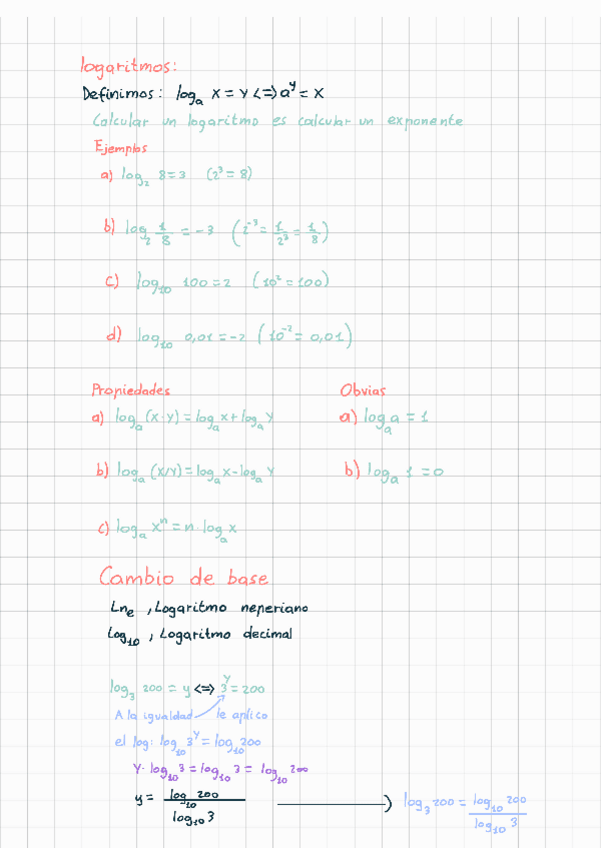 logaritmos:
Definimos: logₐ x = y <=> a^y = x
Calcular un logaritmo es calcular un exponente
Ejemplos
a) log₂ 8 = 3 (2³ = 8)
b) log₂ 1/8 = -3 (2⁻³ = 1/2³ = 1/8)
c) log₁₀ 100 = 2 (10² = 100)
d) log₁₀ 0,01 = -2 (10⁻² = 0,01)
Propiedades Obvias
a) logₐ (x·y) = logₐ x + logₐ y a) logₐ a = 1
b) logₐ (x/y) = logₐ x - logₐ y b) logₐ 1 = 0
c) logₐ xⁿ = n·logₐ x
Cambio de base
Lnₑ, Logaritmo neperiano
Log₁₀, Logaritmo decimal
log₃ 200 = y <=> 3^y = 200
A la igualdad le aplico
el log: log₁₀ 3^y = log₁₀ 200
y·log₁₀ 3 = log₁₀ 3 = log₁₀ 200
y = log₁₀ 200 / log₁₀ 3 → log₃ 200 = log₁₀ 200 / log₁₀ 3